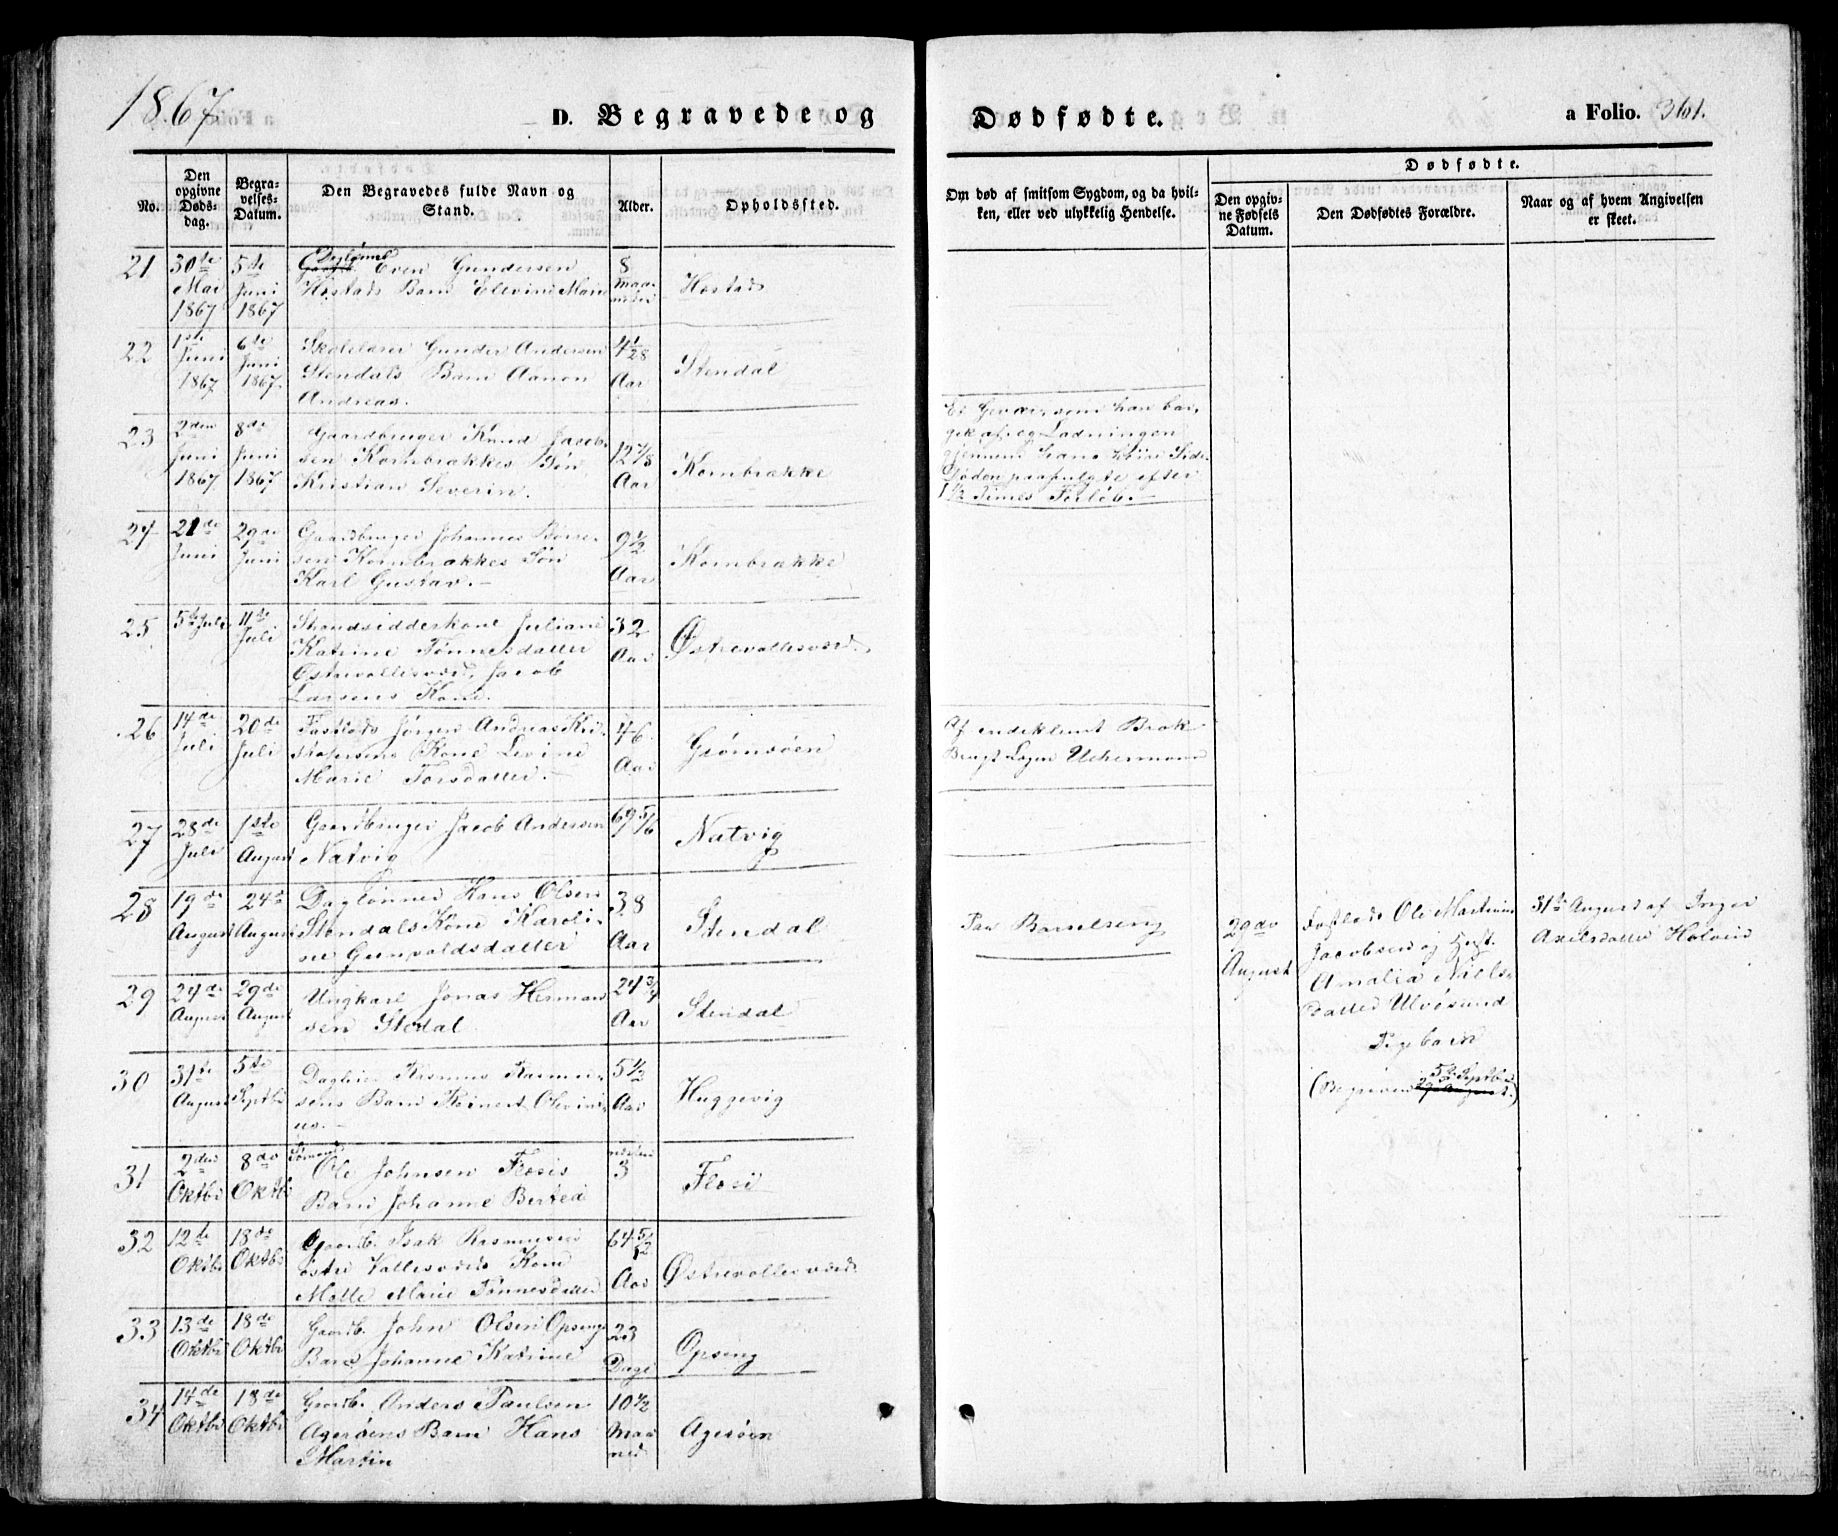 1867
D. Begravede og
Dødfødte.
a Folio. 361.
No.
Den opgivne Dødsdag.
Begravelses-Datum.
Den Begravedes fulde Navn og Stand.
Alder.
Opholdssted.
Om død af smitsom Sygdom, og da hvilken, eller ved ulykkelig Hendelse.
Dødfødte.
Den opgivne Fødsels Datum.
Den Dødfødtes Forældre.
Naar og af hvem Angivelsen er skeet.
21
30te Mai 1867
5te Juni 1867
Daglønner Even Gundersen
Høstads Barn Elevine Marie
8 Maaneder
Høstad
22
1ste Juni 1867
6te Juni 1867
Skolelærer Gunder Andersen
Stendals Barn Aanon
Andreas.
4 1/28 Aar
Stendal
23
2den Juni 1867
8de Juni 1867
Gaardbruger Knud Jacob-
sen Kornbrækkes Søn
Kristian Severin.
12 7/8 Aar
Kornbrække
Et Gevær, som han bar,
gik af, og Ladningen
gjennem hans høire Side.
Døden paafulgte efter
1 1/2 Times Forløb.
24
21de Juni
29de Juni
Gaardbruger Johannes Børre-
sen Kornbrækkes Søn
Karl Gustav.
9 1/2 Aar
Kornbrække
25
5te Juli
11te Juli
Strandsidderkone Juliane
Katrine Tønnesdatter
Østrevallesværd, Jacob
Larsens Kone.
32 Aar
Østrevallesværd
26
14de Juli
20de Juli
Fastlods Jørgen Andreas Kri-
stofersens Kone Levine
Marie Torsdatter.
46 Aar
Grømsøen
Af indeklemt Brok
Brugt Læge Uchermann
27
28de Juli
1ste August
Gaardbruger Jacob Andersen
Natvig
69 5/6
Natvig
28
19de August
24de August
Daglønner Hans Olsen
Stendals Kone Karoli-
ne Gunvaldsdatter
38 Aar
Stendal
Paa Barselseng
29de August
Fastlods Ole Martinius
Jacobsen og Hust.
Amalia Niels-
datter Ulvøsund
Pigebarn
(Begraven 5te Septbr.)
31te August af Inger
Axelsdatter Holvig
29
24de August
29de August
Ungkarl Jonas Herman-
sen Stedal
24 3/4 Aar
Stendal
30
31te August
5te Septbr
Rasmus-
sens Barn Olevini-
us.
5 1/2 Aar
Huggevig
31
2den Oktbr
8de Oktbr
Sømand
Ole Johnsen Flosis
Barn Johanne Bertea
3
Flosi
32
12te Oktbr
18de Oktbr
Gaardb. Isak Rasmusen
østre Vallesværds Kone
Mette Marie Tønnesdatter
64 5/12 Aar
Østrevallesværd
33
13de Oktbr
18de Oktbr
Gaardb. John Olsen Opsengs
Barn Johanne Katrine
23 Dage
Opseng
34
14de Oktbr
18de Oktbr
Gaardb. Anders Paulsen
Agerøens Barn Hans
Martin
10 1/2 Maaned.
Agerøen